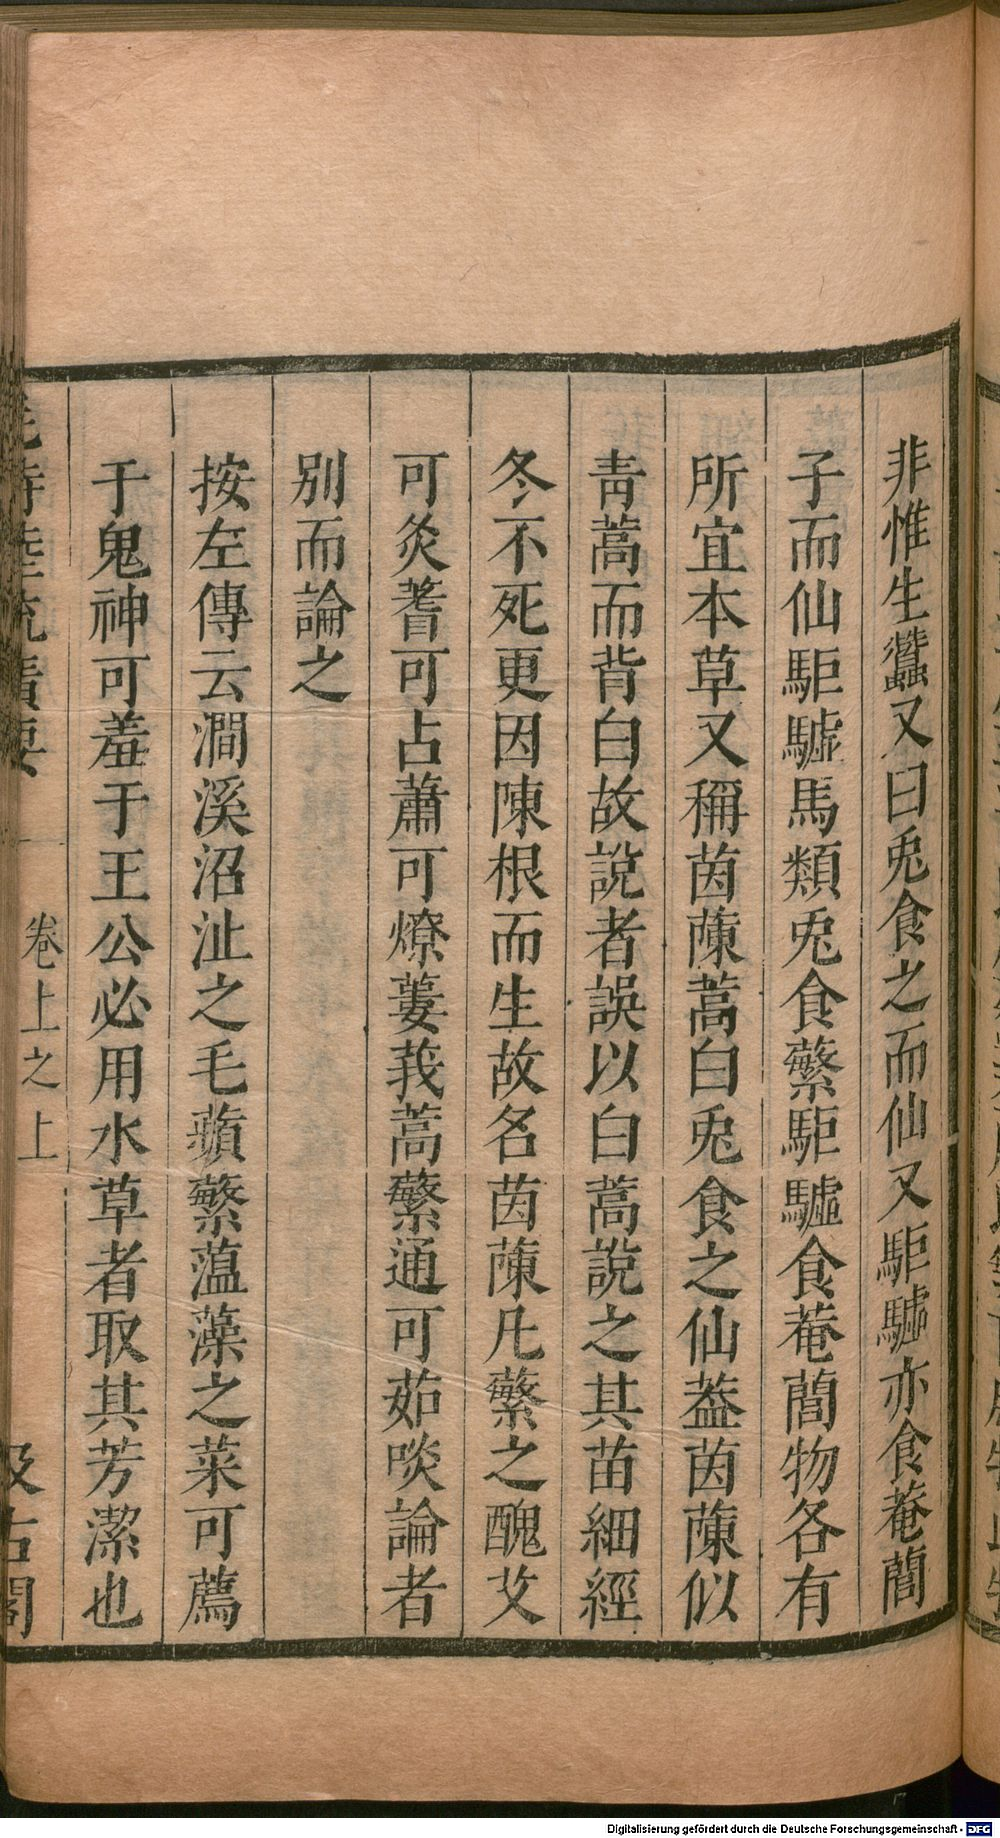 非惟生蠶又曰兎食之而仙又駏驉亦食菴䕡
子而仙駏驉馬類兎食蘩駏驉食菴䕡物各有
所宜本草又稱茵蔯蒿白兎食之仙葢茵蔯似
青蒿而背白故說者誤以白蒿說之其苗細經
冬不死更因陳根而生故名茵蔯凡蘩之醜艾
可灸蓍可占蕭可燎蔞莪蒿蘩通可茹啖論者
別而論之
按左傳云澗溪沼沚之毛蘋蘩薀藻之菜可薦
于鬼神可羞于王公必用水草者取其芳潔也
毛詩陸疏廣要
卷上之上
汲古閣
Digitalisierung gefördert durch die Deutsche Forschungsgemeinschaft - DFG